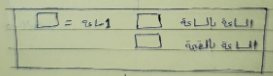 الساعة بالساعة □ 1 ساعة = □
الساعة بالقيمة □